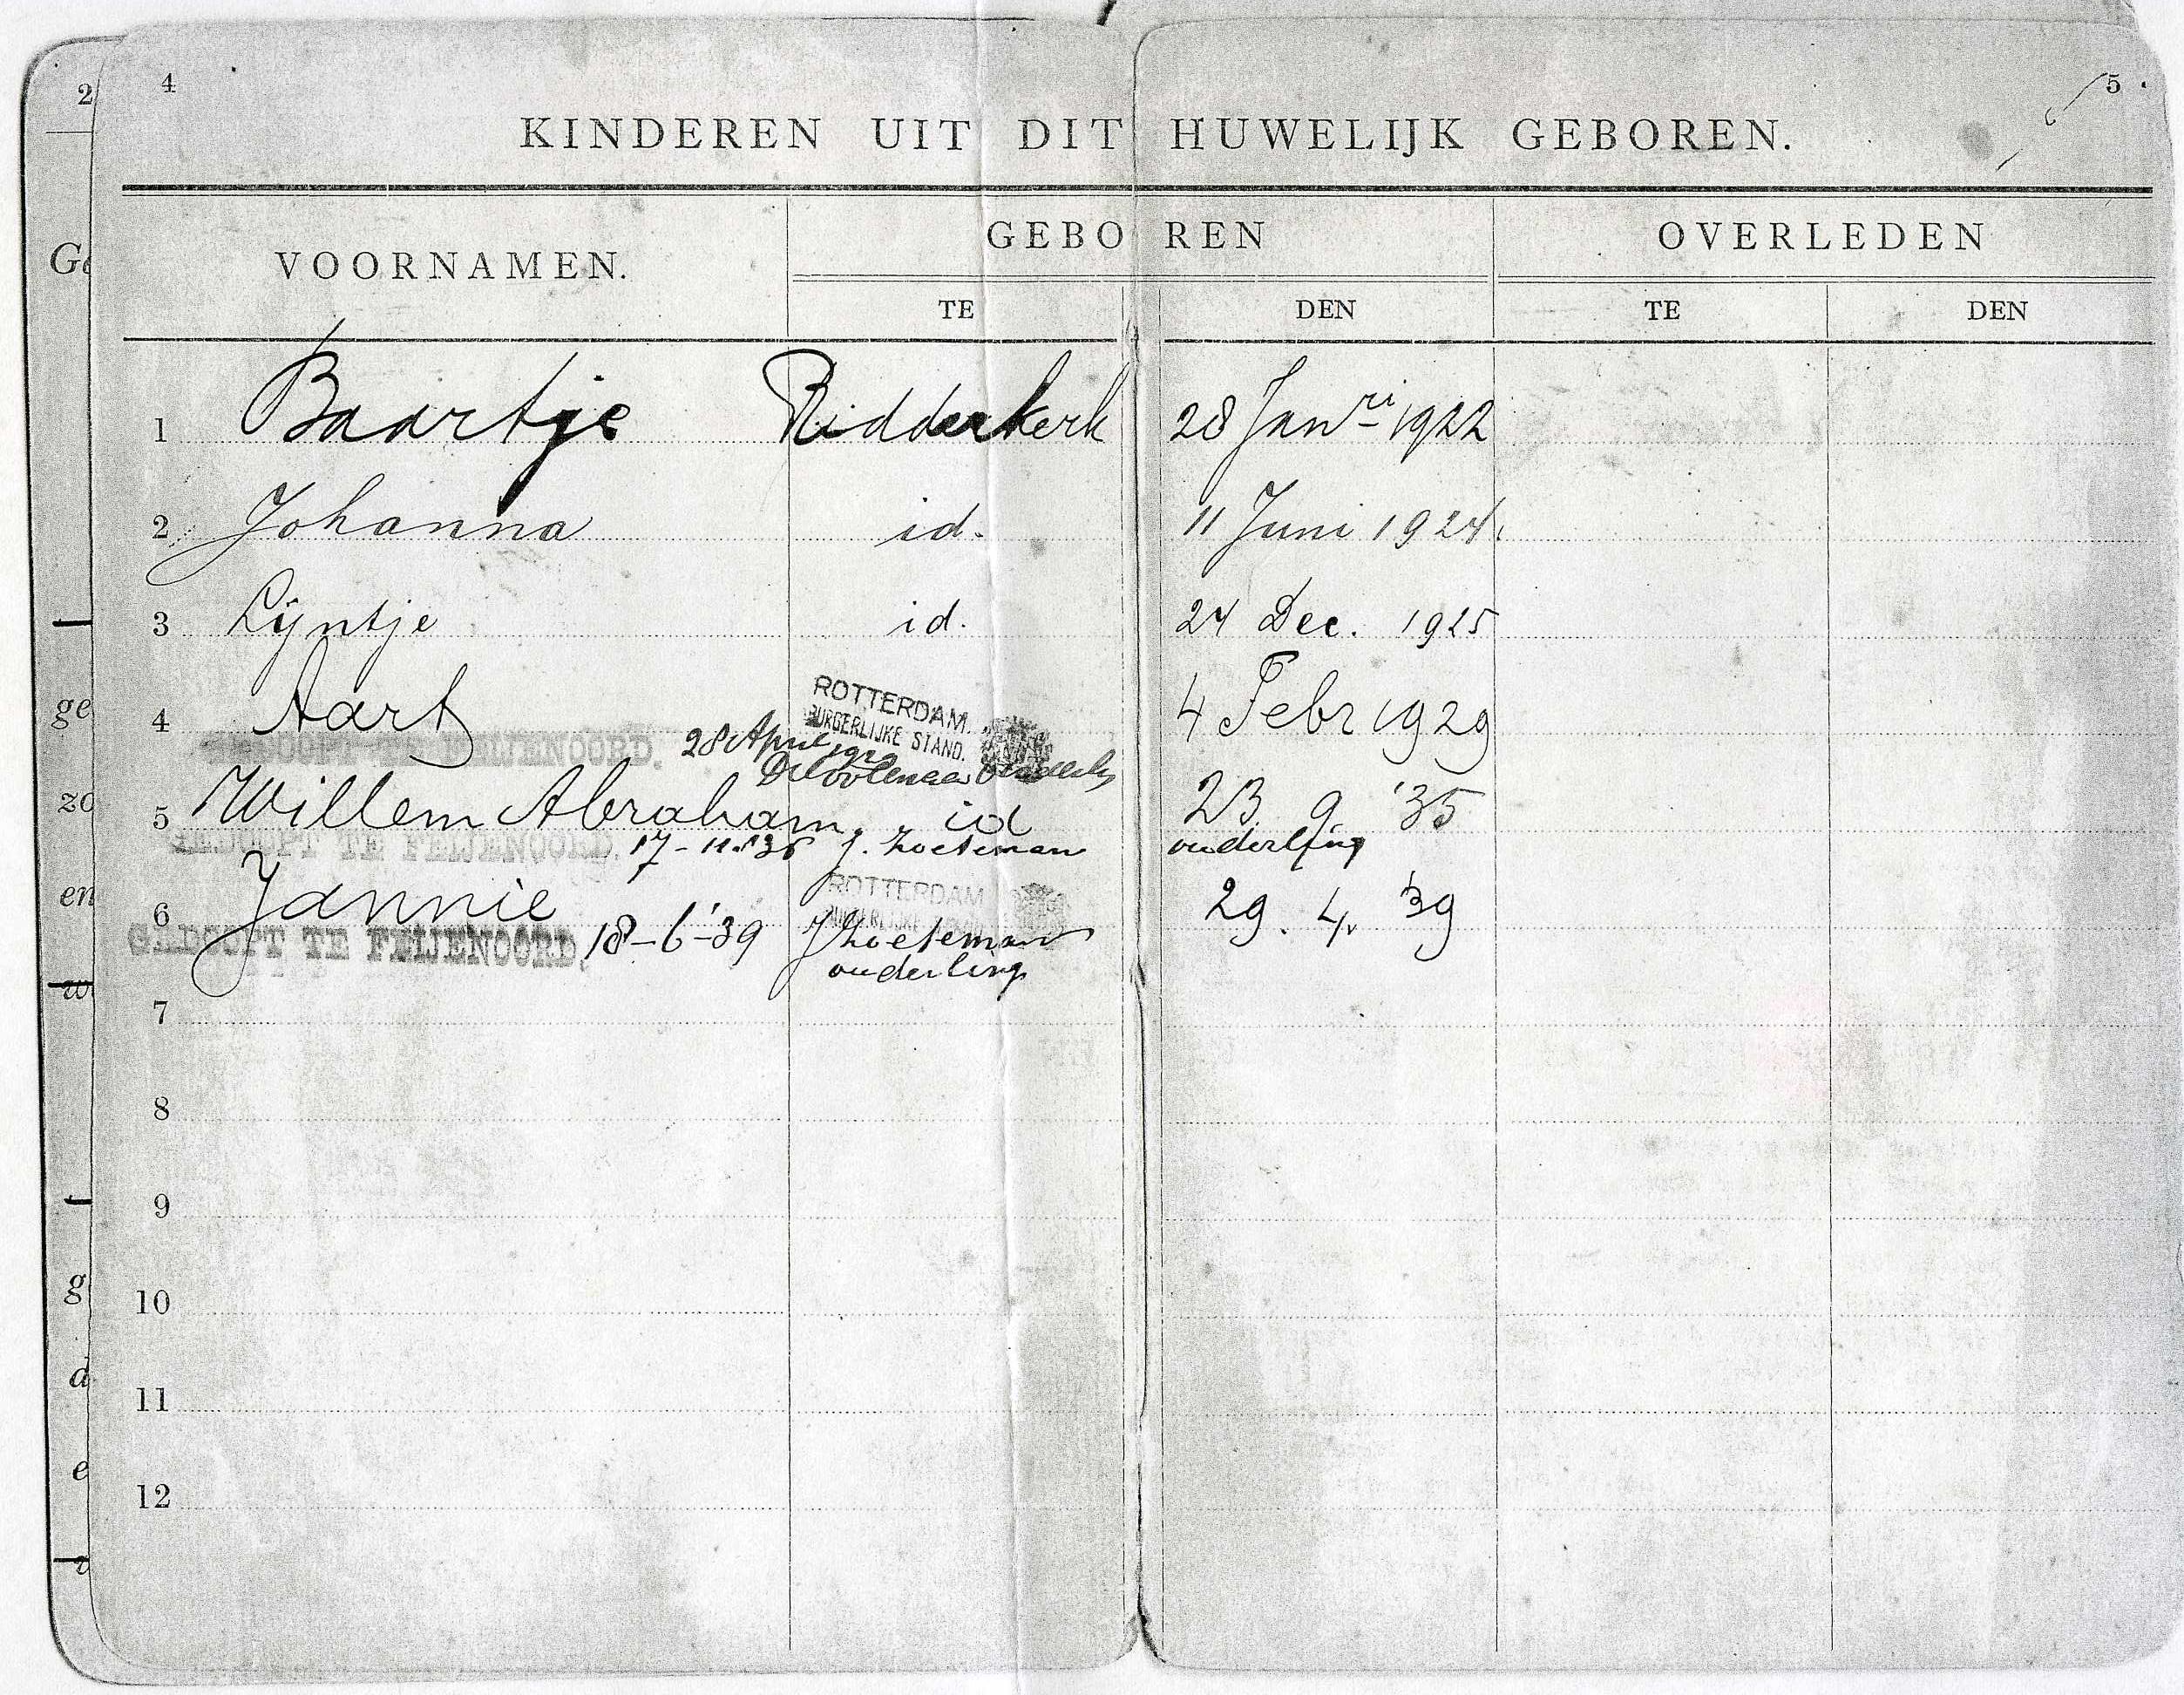 2
4
5
KINDEREN UIT DIT HUWELIJK GEBOREN.
VOORNAMEN.
GEBOREN
OVERLEDEN
TE
DEN
TE
DEN
1 Baartje Ridderkerk 28 Janri 1922
2 Johanna id. 11 Juni 1924.
3 Lijntje id. 24 Dec. 1925
ROTTERDAM.
BURGERLIJKE STAND.
4 Aart 4 Febr 1929
GEDOOPT TE FEIJENOORD. 28 April
5 Willem Abraham. id 23. 9 '35
GEDOOPT TE FEIJENOORD. 17-11-'35 J. Zoeteman ouderling
ROTTERDAM
BURGERLIJKE STAND
6 Jannie 29. 4. '39
GEDOOPT TE FEIJENOORD, 18-6-'39 J Zoeteman
ouderling
7
8
9
10
11
12
ge
zo
en
w
g
d
e